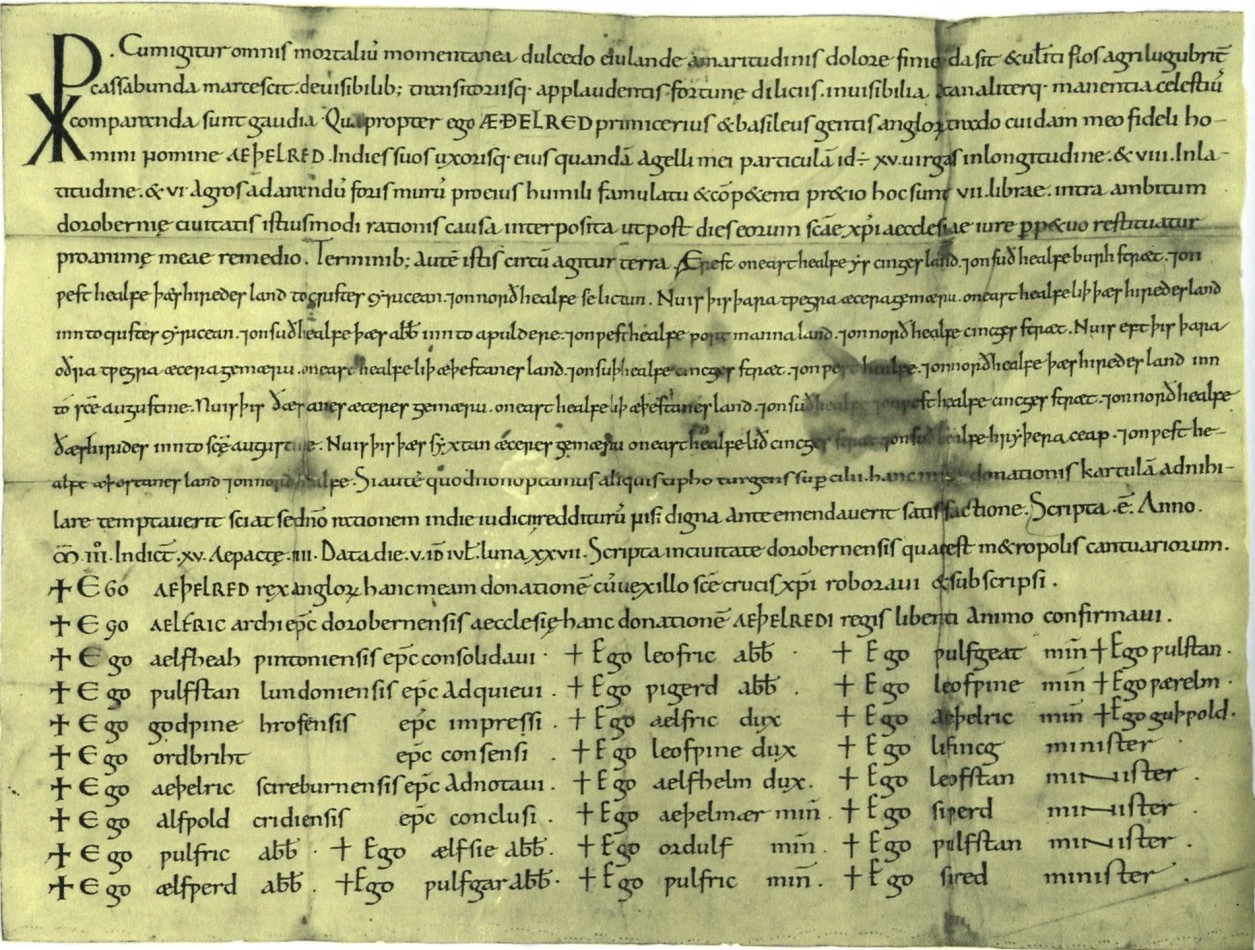 . Cum igitur omnis mortaliū momentanea dulcedo eiulande amaritudinis dolore finiēda sit & uł́ti flos agri lugubrit̄
cassabunda marcescit. de uisibilib; transitoriisq· applaudentis fortunę diliciis. inuisibilia manentia celestiū
comparanda sunt gaudia. Quapropter ego ÆÐELRED primicerius & basileus gentis angloꝝ trado cuidam meo fideli ho-
mini nomine AEÞELRED. In dies suos uxorisq· eius quandā agelli mei particulā id÷ xv. uirgas in longitudine. & viii. In la-
titudine. & vi agros ad arandū foris murū pro eius humili famulatu & cōp&enti pr&io hoc sunt vii. librae. intra ambitum
dorobernię ciuitatis istiusmodi rationis causa interposita ut post dies eorum scāe xp̄i aecclesiae iure ꝑp&uo restituatur
pro animę meae remedio. Terminib; autē istis circū agitur terra. Ærest on easthealfe ƿẏ cinges land. ⁊on suðhealfe burhstræt. ⁊on
ƿesthealfe þæs hiredes land to cristes cẏrucean. ⁊on norðhealfe se lictun. Nu is þis þara tƿegra æcera gemæru. on easthealfe liþ þæs hiredes land
inn to cristes cẏrucean. ⁊on suðhealfe þæs abb̄ inn to apuldere. ⁊on ƿesthealfe port manna land. ⁊on norðhealfe cinges stræt. Nu is eft þis þara
oðra tƿegra æcera gemæru. on easthealfe liþ æþestanes land. ⁊on suþhealfe cinges stræt. ⁊on ƿest healfe. ⁊on norðhealfe þæs hiredes land inn
to scē augustine. Nu is þis ðæs anes æceres gemæru. on easthealfe liþ æþestanes land. ⁊on suðhealfe ⁊on ƿesthealfe cinges stræt. ⁊on norðhealfe
ðæs hirides inn to scē augustine. Nu is þis þæs sẏxtan æceres gemæru on easthealfe lið cinges stræt ⁊on suðhealfe hriþera ceap. ⁊on ƿesthe-
alfe æþestanes land ⁊on norðhealfe. Si autē quod non optamus aliquis tipho turgens suꝑcilii. hanc meę donationis kartulā adnihi-
lare temptauerit sciat se dn̄o rationem in die iudicii redditurū nisi digna ante emendauerit satisfactione. Scripta .ē. Anno.
m̄. iiī. Indict̄. xv. Aepactę. iiii. Data die. v. iđ iuł. luna xxvii. Scripta in ciuitate dorobernensis quae est m&ropolis cantuariorum.
✝ Ego AEÞELRED rex angloꝝ hanc meam donationē cū uexillo scē crucis xp̄i roboraui & subscripsi.
✝ Ego AELFRIC archiep̄c dorobernensis aecclesię hanc donationē AEÞELREDI regis libenti animo confirmaui.
✝ Ego aelfheah ƿintoniensis ep̄c consolidaui · ✝ Ego leofric abb̄ . ✝ Ego ƿulfgeat min̄ ✝ Ego ƿulstan.
✝ Ego ƿulfstan lundoniensis ep̄c adquieui . ✝ Ego ƿigerd abb̄ . ✝ Ego leofƿine min̄ ✝ Ego ƿærelm.
✝ Ego godƿine hrofensis ep̄c impressi . ✝ Ego aelfric dux ✝ Ego aeþelric min̄ ✝ Ego guþƿold.
✝ Ego ordbriht ep̄c consensi . ✝ Ego leofƿine dux ✝ Ego lifincg minister .
✝ Ego aeþelric scireburnensis ep̄c adnotaui . ✝ Ego aelfhelm dux. ✝ Ego leofstan minister .
✝ Ego alfƿold cridiensis ep̄c conclusi . ✝ Ego aeþelmær min̄ . ✝ Ego siƿerd minister .
✝ Ego ƿulfric abb̄ · ✝ Ego ælfsie abb̄. ✝ Ego ordulf min̄. ✝ Ego ƿulfstan minister .
✝ Ego ælfƿerd abb̄ . ✝ Ego ƿulfgar abb̄· ✝ Ego ƿulfric min̄. ✝ Ego sired minister .